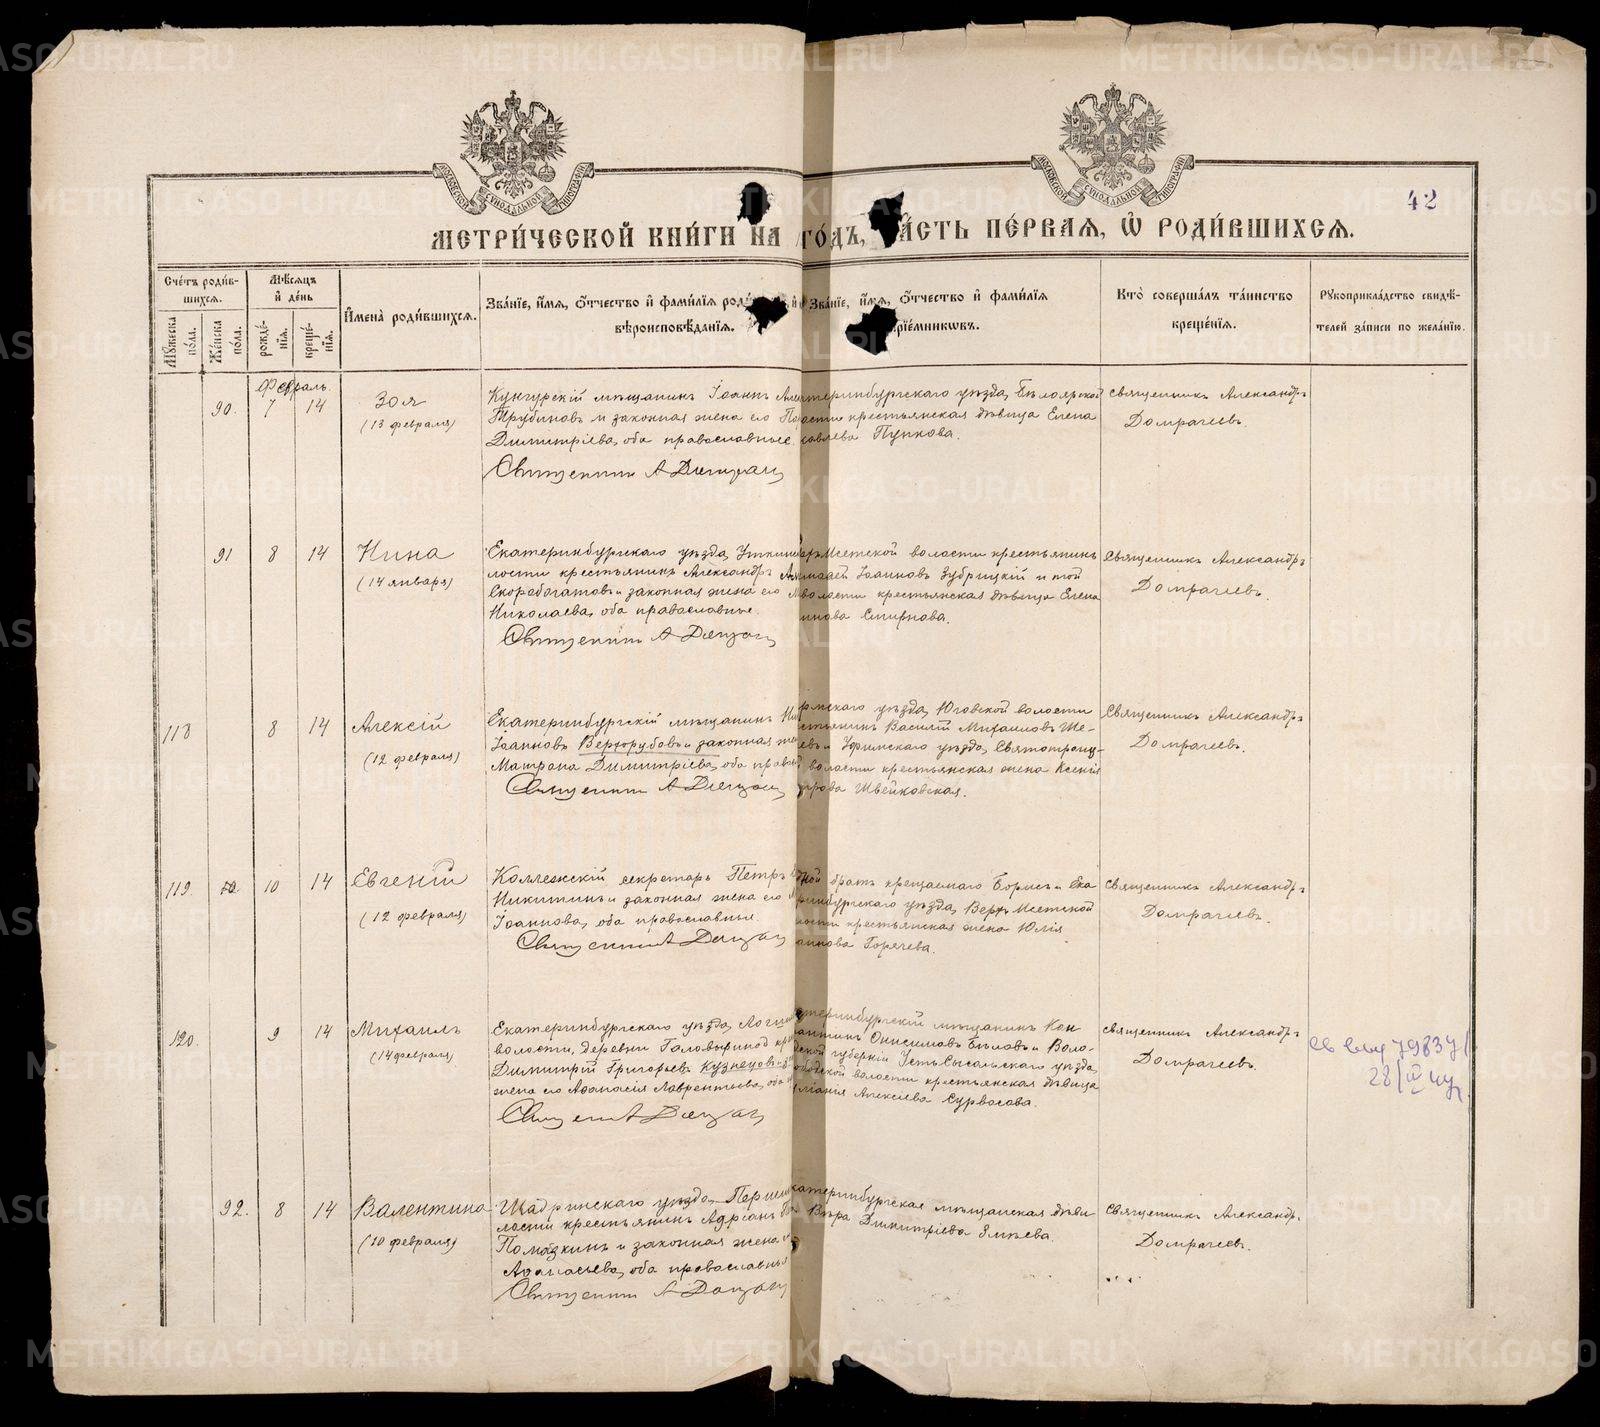 МЕТРИ́ЧЕСКОЙ КНИ́ГИ НА ГО́ДЪ, ЧА́СТЬ ПЕ́РВАЯ, Ѡ РОДИ́ВШИХСЯ.
42
Сче́тъ роди́в-
шихся.
Му́жеска
по́ла.
Же́нска
по́ла.
Мѣ́сяцъ
и де́нь
рожде́-
нїя.
креще́-
нїя.
Имена̀ роди́вшихся.
Зва́нїе, и́мя, о́тчество и фами́лїя
вѣроисповѣ́данїя.
Зва́нїе, и́мя, о́тчество и фами́лїя
прїе́мниковъ.
Кто̀ соверша́лъ та́инство
креще́нїя.
Рукоприкла́дство свидѣ́-
телей за́писи по жела́нїю.
Февраль
90. 7 14 Зоя
(13 февраля)
Кунгурскій мѣщанинъ Іоаннъ
Трубиновъ и законная жена его
Димитріева, оба православные
Священникъ А Домрачевъ
уѣзда, Бѣлоярской
крестьянская дѣвица Елена
Пупкова.
Священникъ Александръ
Домрачевъ.
91 8 14 Нина
(14 января)
Екатеринбургскаго уѣзда,
лости крестьянинъ Александръ
Скоробогатовъ и законная жена его
Николаева, оба православные.
Священникъ А Домрачевъ
Исетской волости крестьянинъ
Іоанновъ Зубрицкій и той
волости крестьянская дѣвица Елена
Смирнова.
Священникъ Александръ
Домрачевъ.
118 8 14 Алексій
(12 февраля)
Екатеринбургскій мѣщанинъ
Іоанновъ Верхорубовъ и законная
Матрона Димитріева, оба
Священникъ А Домрачевъ
уѣзда, Юговской волости
Василій Михаиловъ Ше-
и Уфимскаго уѣзда, Святотроиц-
волости крестьянская жена Ксенія
Швейковская.
Священникъ Александръ
Домрачевъ.
119. 10 14 Евгеній
(12 февраля)
Коллежскій секретарь Петръ
Никитинъ и законная жена его
Іоаннова, оба православные.
Священникъ А Домрачевъ
братъ крещаемаго Борисъ и Ека
уѣзда, Верхъ Исетской
крестьянская жена Юлія
Горячева.
Священникъ Александръ
Домрачевъ.
120. 9 14 Михаилъ
(14 февраля)
Екатеринбургскаго уѣзда,
волости, деревни Головыриной
Димитрій Григорьевъ Кузнецовъ и
жена его Афанасія Лаврентьева, оба
Священникъ А Домрачевъ
мѣщанинъ Кон
Онисимовъ Бѣловъ и Воло-
губерніи Усть Сысольскаго уѣзда,
волости крестьянская дѣвица
Алексіева Сурвосова.
Священникъ Александръ
Домрачевъ.
92. 8 14 Валентина
(10 февраля)
Шадринскаго уѣзда,
лости крестьянинъ Адріанъ
Помазкинъ и законная жена
Афанасьева, оба православные
Священникъ А Домрачевъ
мѣщанская дѣви
Вѣра Димитріева Змѣева.
Священникъ Александръ
Домрачевъ.
METRIKI.GASO-URAL.RU